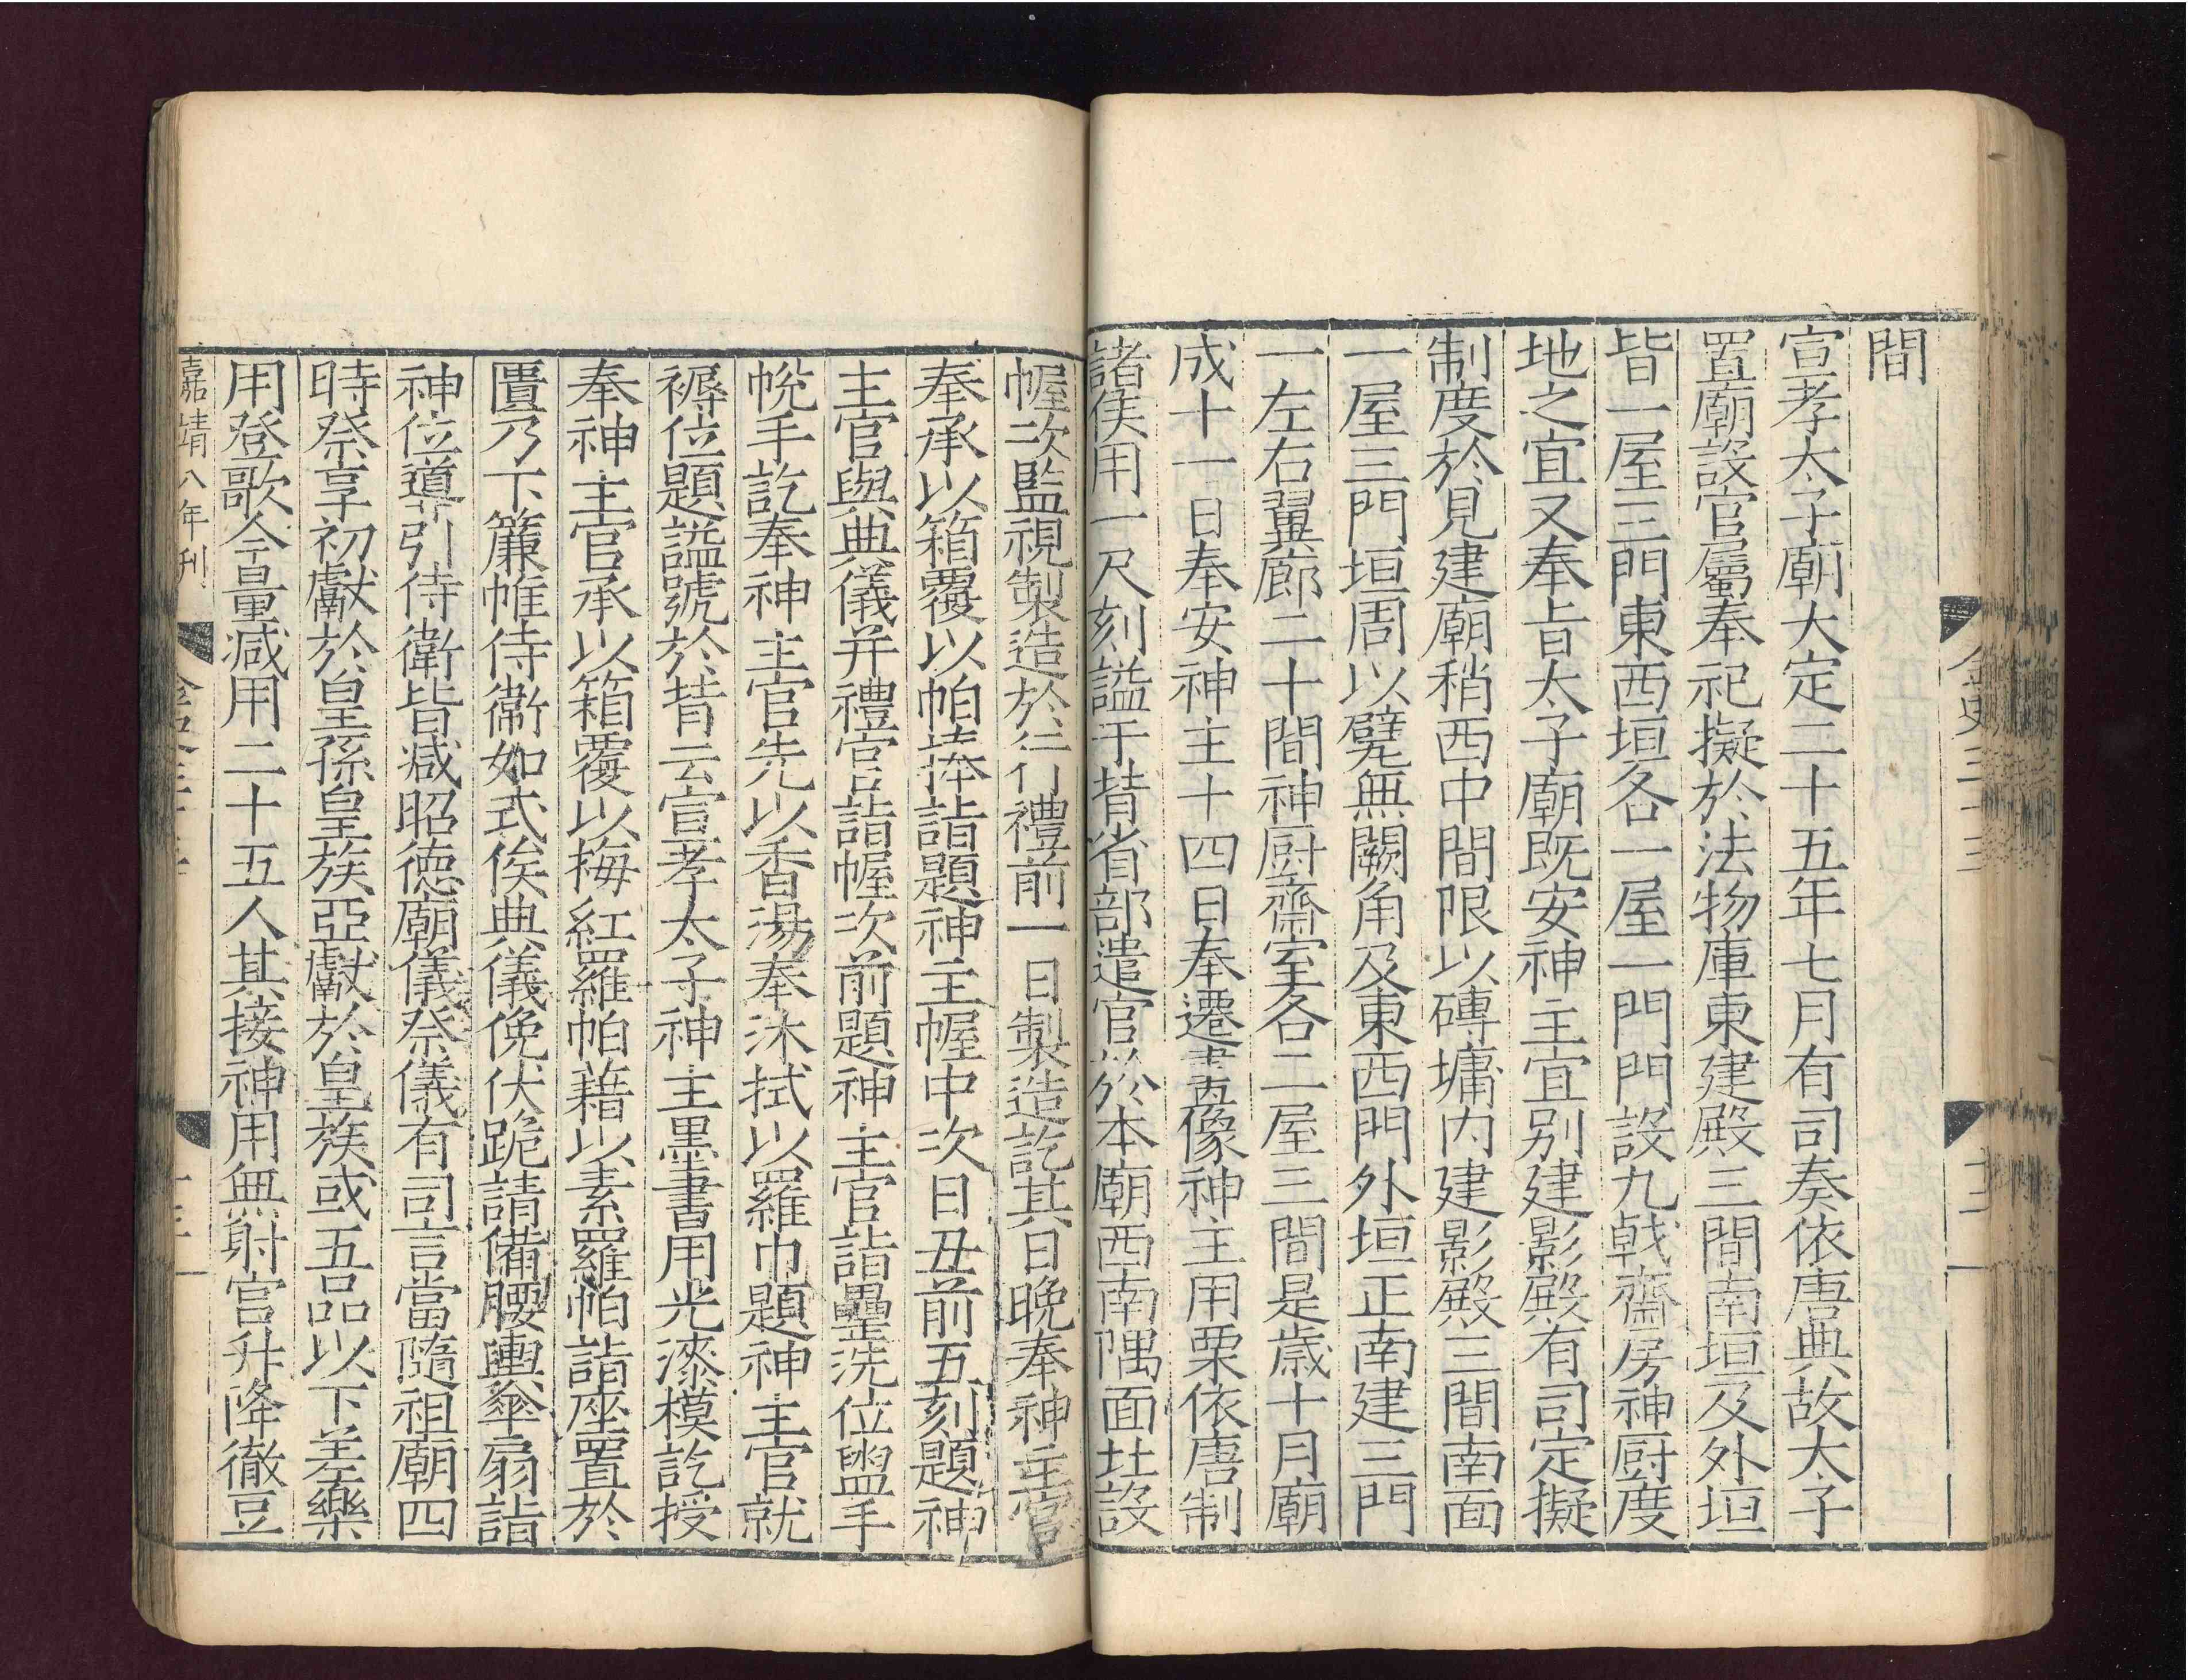 間
宣孝太子廟大定二十五年七月有司奏依唐典故太子
置廟設官屬奉祀擬於法物庫東建殿三間南垣及外垣
皆一屋三門東西垣各一屋一門門設九戟齋房神厨度
地之宜又奉旨太子廟既安神主宜别建影殿有司定擬
制度於見建廟稍西中間限以磚墉内建影殿三間南面
一屋三門垣周以甓無闕角及東西門外垣正南建三門
一左右翼廊二十間神厨齋室各二屋三間是歲十月廟
成十一日奉安神主十四日奉遷畫像神主用栗依唐制
諸侯用一尺刻謚于背省部遣官於本廟西南隅面北設
金史三十三
十二
幄次監視製造於行禮前一日製造訖其日晚奉神主官
奉承以箱覆以帕捧詣題神主幄中次日丑前五刻題神
主官與典儀并禮官詣幄次前題神主官詣罍洗位盥手
帨手訖奉神主官先以香湯奉沐拭以羅巾題神主官就
褥位題謚號於背云宣孝太子神主墨書用光漆模訖授
奉神主官承以箱覆以梅紅羅帕藉以素羅帕詣座置於
匱乃下簾帷侍衛如式俟典儀俛伏跪請備腰輿傘扇詣
神位導引侍衛皆减昭德廟儀祭儀有司言當隨祖廟四
時祭享初獻於皇孫皇族亞獻於皇族或五品以下差樂
用登歌今量减用二十五人其接神用無射宮升降徹豆
嘉靖八年刊
金史三十三
十三